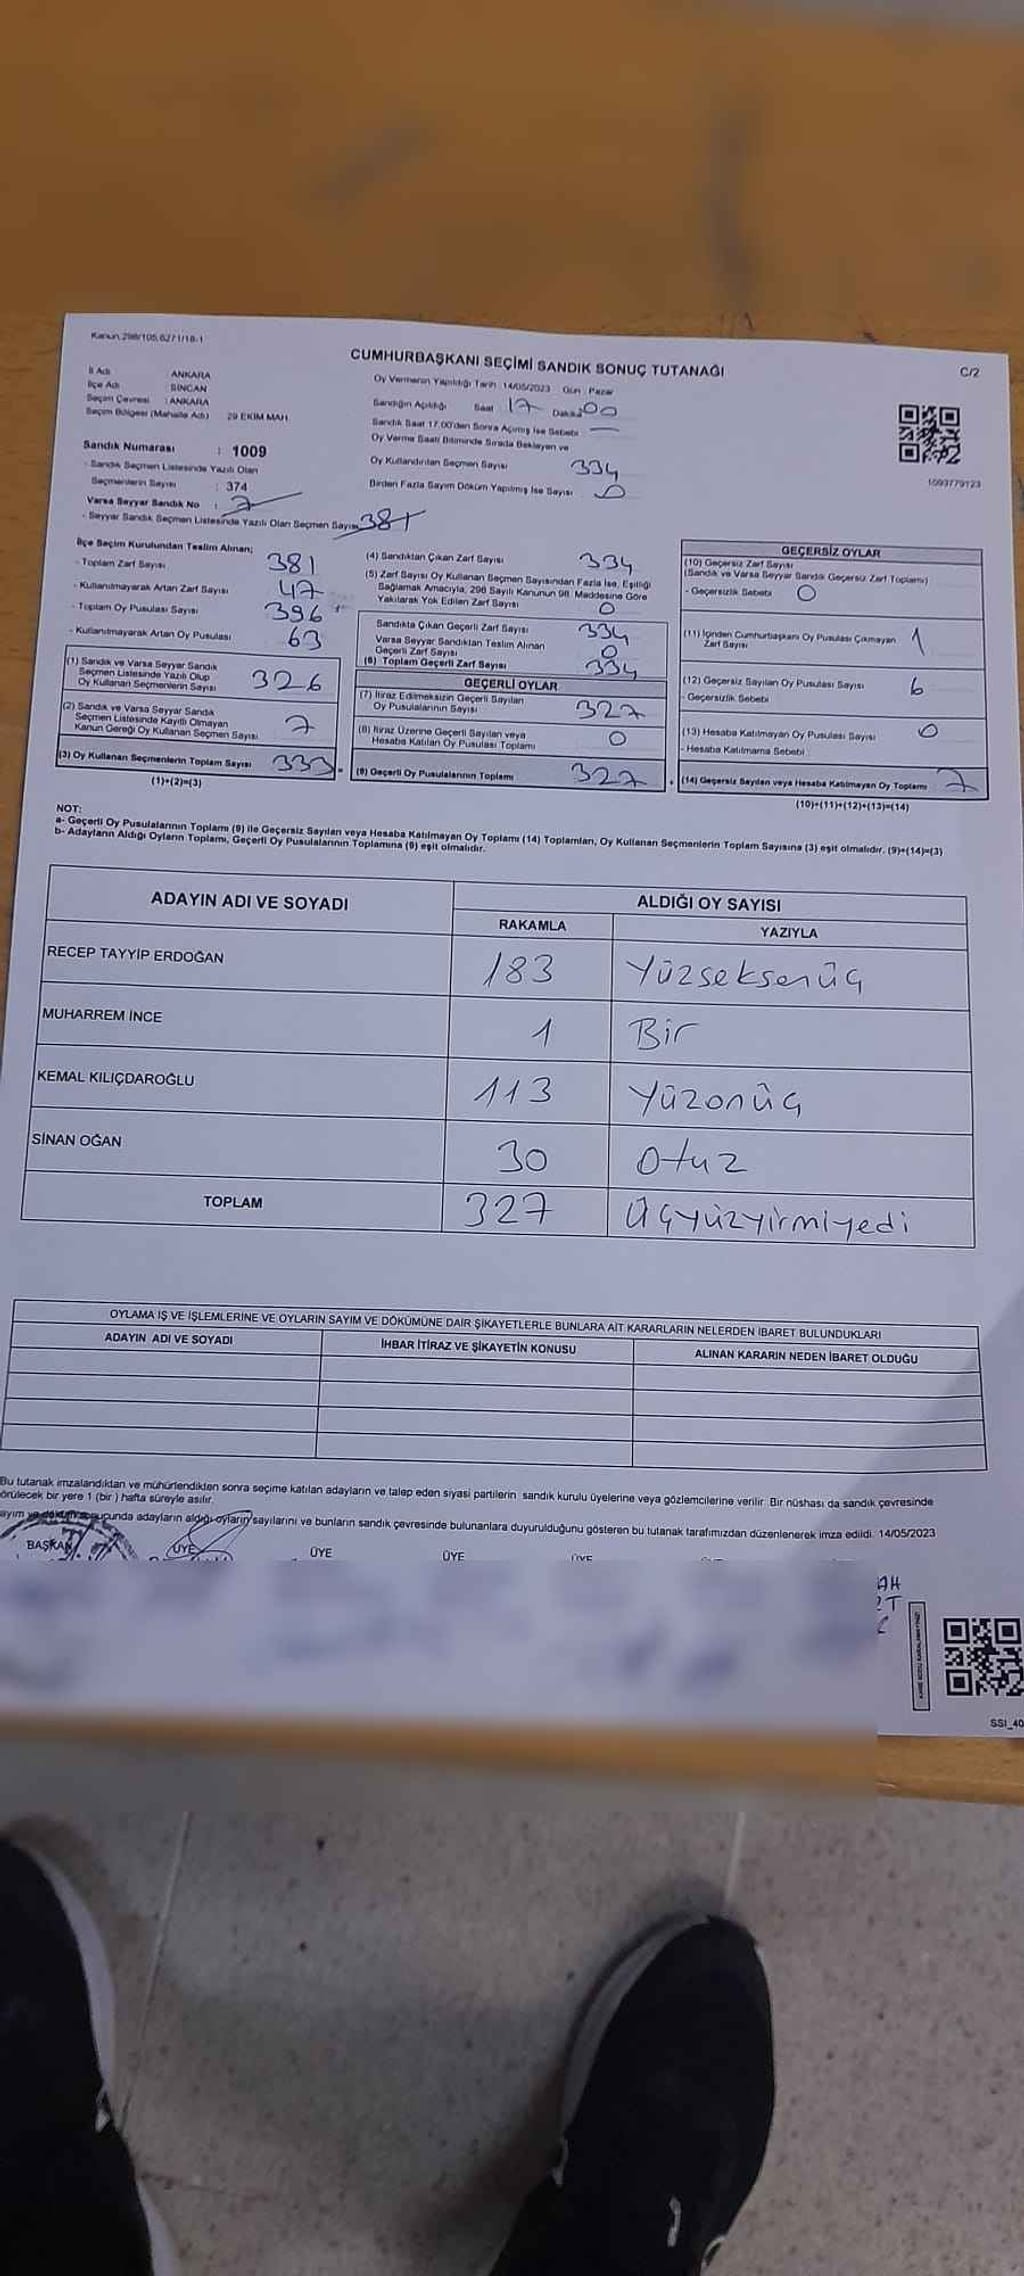 Kanun 298/105,6271/18-1
CUMHURBAŞKANI SEÇİMİ SANDIK SONUÇ TUTANAĞI
C/2
İl Adı : ANKARA
İlçe Adı : SİNCAN
Seçim Çevresi : ANKARA
Seçim Bölgesi (Mahalle Adı) 29 EKİM MAH.
Sandık Numarası : 1009
- Sandık Seçmen Listesinde Yazılı Olan
Seçmenlerin Sayısı : 374
Varsa Seyyar Sandık No : 7
- Seyyar Sandık Seçmen Listesinde Yazılı Olan Seçmen Sayısı 381
Oy Vermenin Yapıldığı Tarih : 14/05/2023 Gün : Pazar
Sandığın Açıldığı Saat 17 Dakika 00
Sandık Saat 17.00'den Sonra Açımış İse Sebebi : —
Oy Verme Saati Bitiminde Sırada Bekleyen ve
Oy Kullandırılan Seçmen Sayısı 334
Birden Fazla Sayım Döküm Yapılmış İse Sayısı 0
1093779123
İlçe Seçim Kurulundan Teslim Alınan;
- Toplam Zarf Sayısı 381
- Kullanılmayarak Artan Zarf Sayısı 47
- Toplam Oy Pusulası Sayısı 396
- Kullanılmayarak Artan Oy Pusulası 63
(1) Sandık ve Varsa Seyyar Sandık
Seçmen Listesinde Yazılı Olup
Oy Kullanan Seçmenlerin Sayısı 326
(2) Sandık ve Varsa Seyyar Sandık
Seçmen Listesinde Kayıtlı Olmayan
Kanun Gereği Oy Kullanan Seçmen Sayısı 7
(3) Oy Kullanan Seçmenlerin Toplam Sayısı 333
(1)+(2)=(3)
(4) Sandıktan Çıkan Zarf Sayısı 334
(5) Zarf Sayısı Oy Kullanan Seçmen Sayısından Fazla İse, Eşitliği
Sağlamak Amacıyla, 298 Sayılı Kanunun 98. Maddesine Göre
Yakılarak Yok Edilen Zarf Sayısı 0
Sandıkta Çıkan Geçerli Zarf Sayısı 334
Varsa Seyyar Sandıktan Teslim Alınan
Geçerli Zarf Sayısı 0
(6) Toplam Geçerli Zarf Sayısı 334
GEÇERLİ OYLAR
(7) İtiraz Edilmeksizin Geçerli Sayılan
Oy Pusulalarının Sayısı 327
(8) İtiraz Üzerine Geçerli Sayılan veya
Hesaba Katılan Oy Pusulası Toplamı 0
(9) Geçerli Oy Pusulalarının Toplamı 327
GEÇERSİZ OYLAR
(10) Geçersiz Zarf Sayısı
(Sandık ve Varsa Seyyar Sandık Geçersiz Zarf Toplamı)
- Geçersizlik Sebebi 0
(11) İçinden Cumhurbaşkanı Oy Pusulası Çıkmayan
Zarf Sayısı 1
(12) Geçersiz Sayılan Oy Pusulası Sayısı 6
- Geçersizlik Sebebi
(13) Hesaba Katılmayan Oy Pusulası Sayısı 0
- Hesaba Katılmama Sebebi
(14) Geçersiz Sayılan veya Hesaba Katılmayan Oy Toplamı 7
(10)+(11)+(12)+(13)=(14)
NOT:
a- Geçerli Oy Pusulalarının Toplamı (9) ile Geçersiz Sayılan veya Hesaba Katılmayan Oy Toplamı (14) Toplamları, Oy Kullanan Seçmenlerin Toplam Sayısına (3) eşit olmalıdır. (9)+(14)=(3)
b- Adayların Aldığı Oyların Toplamı, Geçerli Oy Pusulalarının Toplamına (9) eşit olmalıdır.
ADAYIN ADI VE SOYADI ALDIĞI OY SAYISI
RAKAMLA YAZIYLA
RECEP TAYYİP ERDOĞAN 183 Yüzseksenüç
MUHARREM İNCE 1 Bir
KEMAL KILIÇDAROĞLU 113 Yüzonüç
SİNAN OĞAN 30 Otuz
TOPLAM 327 Üçyüzyirmiyedi
OYLAMA İŞ VE İŞLEMLERİNE VE OYLARIN SAYIM VE DÖKÜMÜNE DAİR ŞİKAYETLERLE BUNLARA AİT KARARLARIN NELERDEN İBARET BULUNDUKLARI
ADAYIN ADI VE SOYADI İHBAR İTİRAZ VE ŞİKAYETİN KONUSU ALINAN KARARIN NEDEN İBARET OLDUĞU
Bu tutanak imzalandıktan ve mühürlendikten sonra seçime katılan adayların ve talep eden siyasi partilerin sandık kurulu üyelerine veya gözlemcilerine verilir. Bir nüshası da sandık çevresinde
örülecek bir yere 1 (bir) hafta süreyle asılır.
ayım ve döküm sonucunda adayların aldığı oyların sayılarını ve bunların sandık çevresinde bulunanlara duyurulduğunu gösteren bu tutanak tarafımızdan düzenlenerek imza edildi. 14/05/2023
BAŞKAN ÜYE ÜYE ÜYE ÜYE
SSI_40